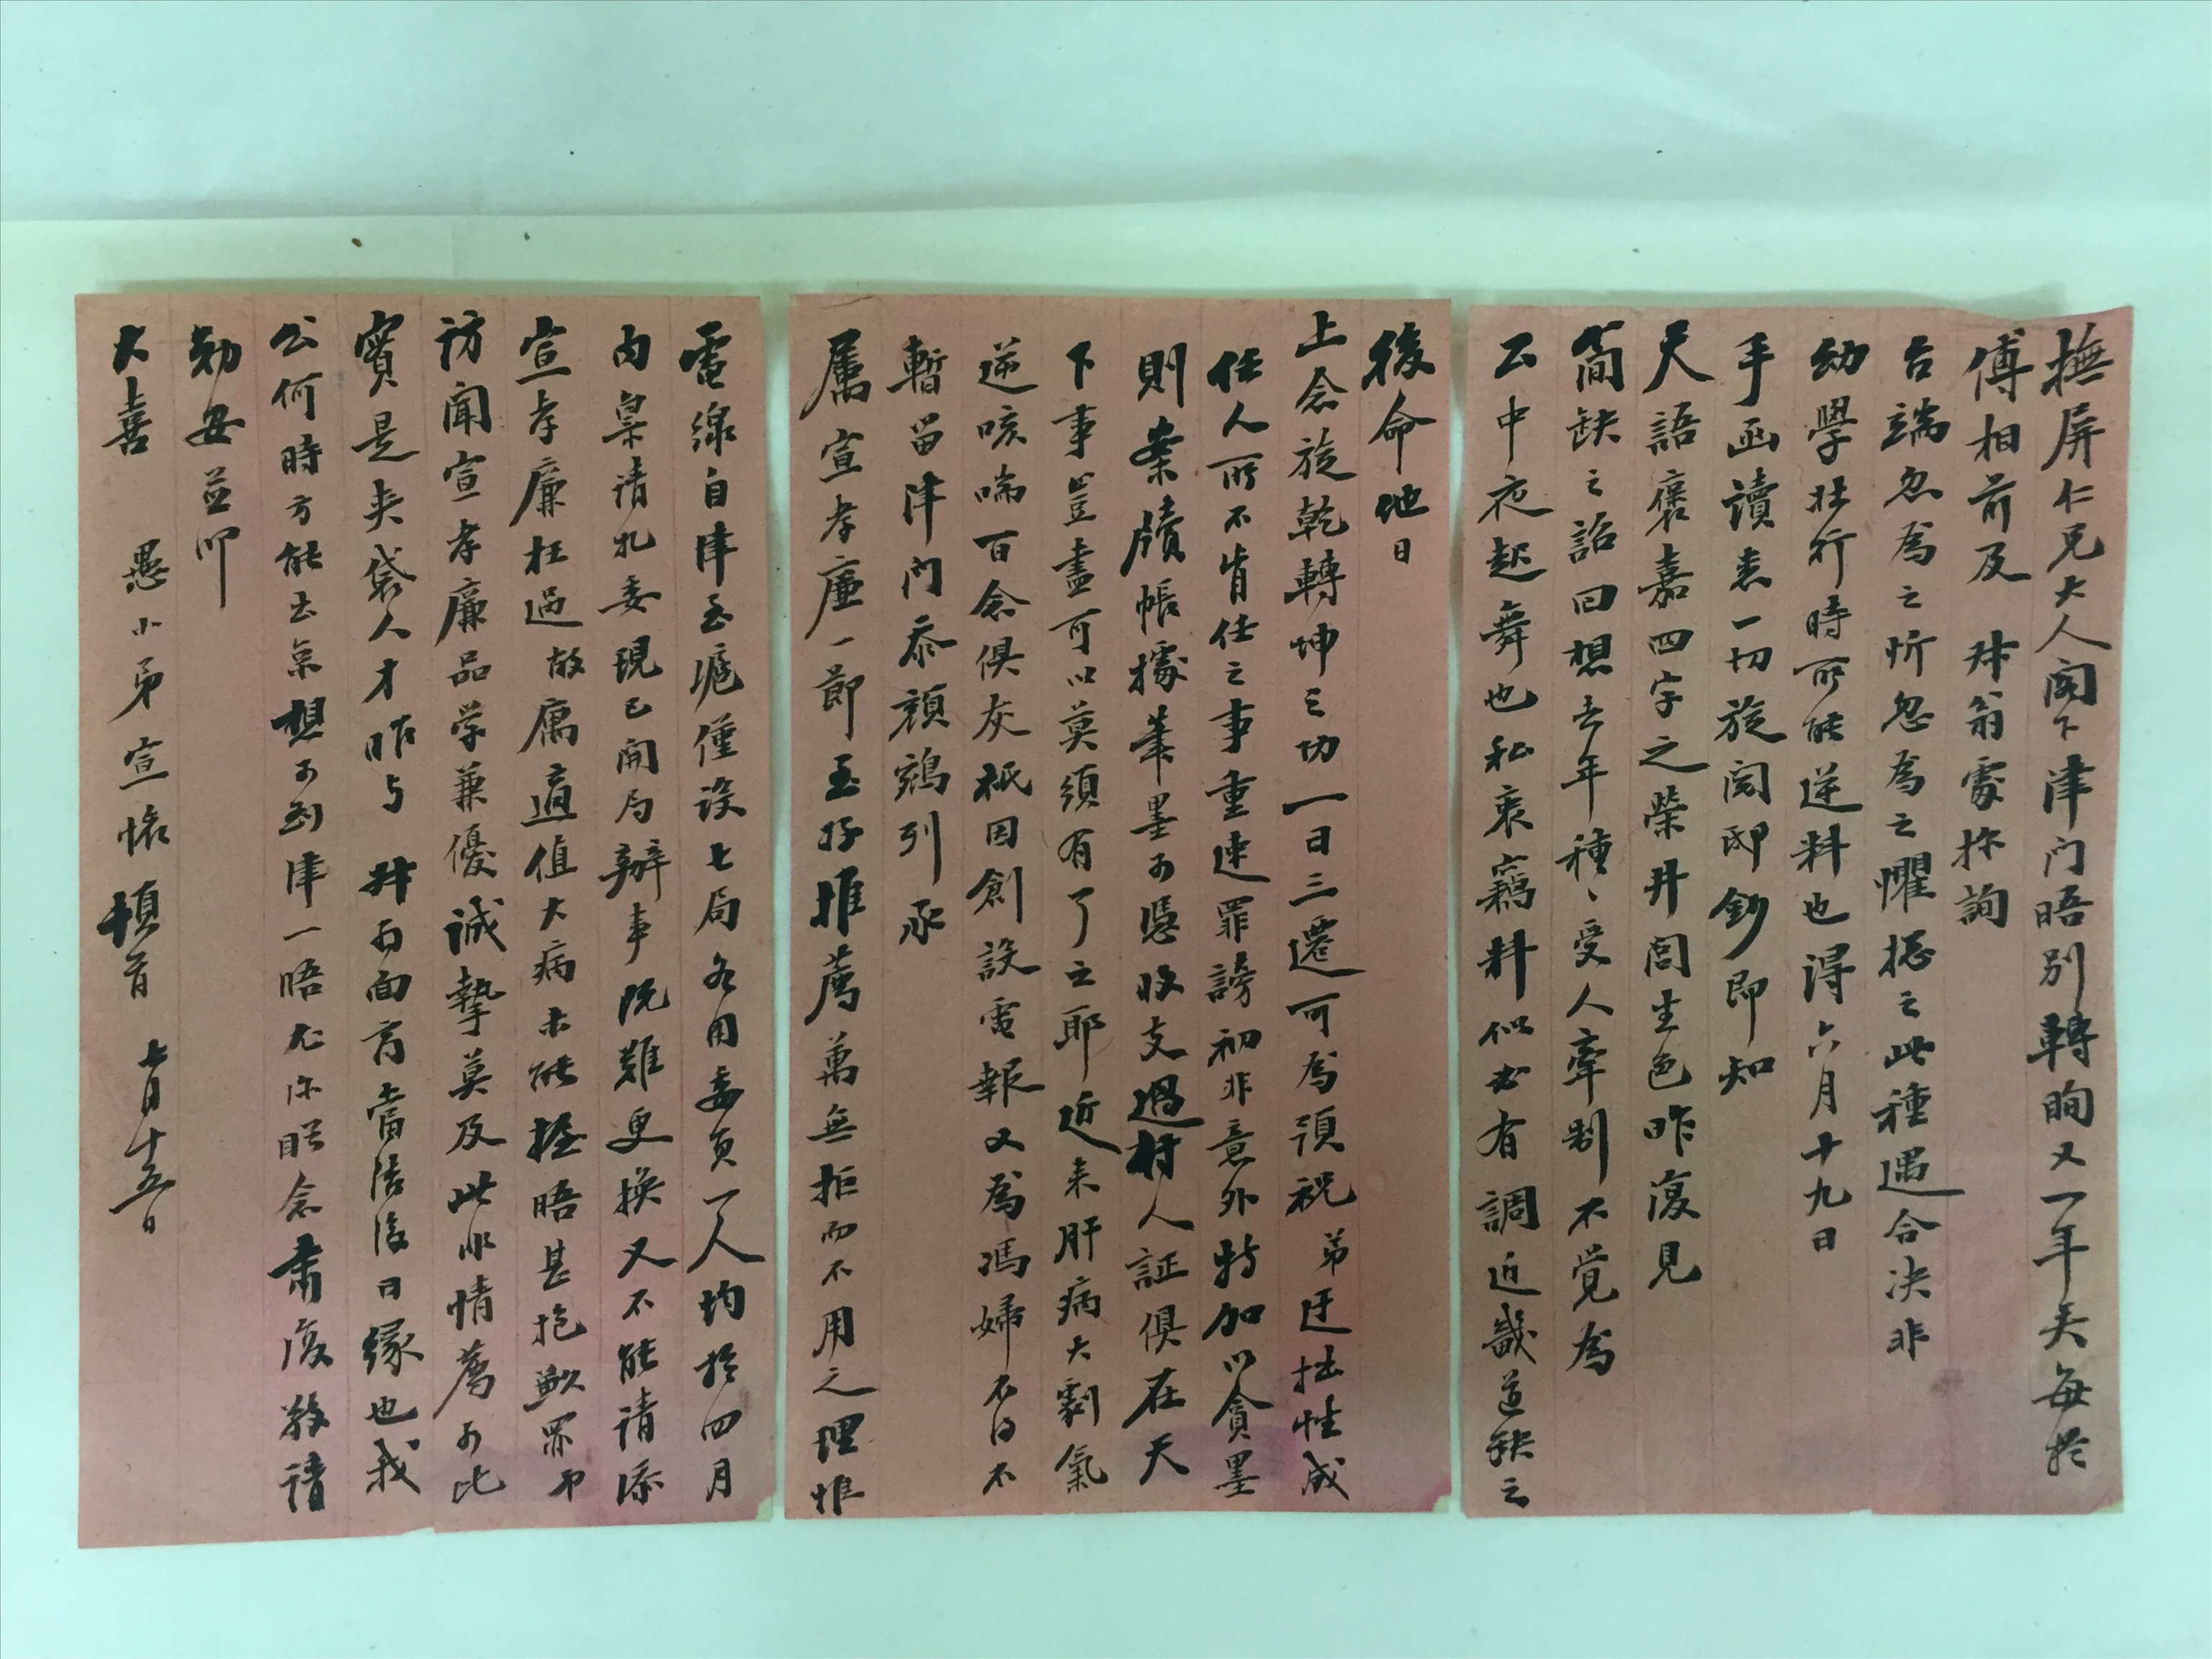 撫屏仁兄大人閣下津门晤别轉眴又一年矣每於
傅相前及 井翁處探詢
台端忽為之忻忽為之懼揔之此種遇合决非
幼學壯行時所能逆料也得六月十九日
手函讀悉一切旋閱邸鈔即知
天語褒嘉四字之榮井閭生色昨復見
簡缺之詔回想去年種〻受人牽制不覺為
公中夜起舞也私衷竊料似必有調近畿道缺之
後命他日
上念旋乾轉坤之功一日三遷可為預祝弟迂拙性成
任人所不肯任之事重速罪謗初非意外特加以貪墨
則案牘帳據筆墨可憑收支過村人証俱在天
下事豈盡可以莫須有了之耶近来肝病大劇氣
逆咳喘百念俱灰祇因創設電報又為馮婦不得不
暫留津门忝顏鵷列承
属宣孝廉一節至好推薦萬無拒而不用之理惟
電線自津至滬僅設七局各用委員一人均於四月
内稟請札委現已開局辦事既難更换又不能請添
宣孝廉枉過敝寓適值大病未能握晤甚抱歉罪而
訪聞宣孝廉品学兼優誠摯莫及此非情薦可比
實是夹袋人才昨与 井甫面商當結後日缘也我
公何時方能去京想可到津一晤尤深盼念肃復敬請
勋安並叩
大喜 愚小弟宣懷頓首 七月十五日